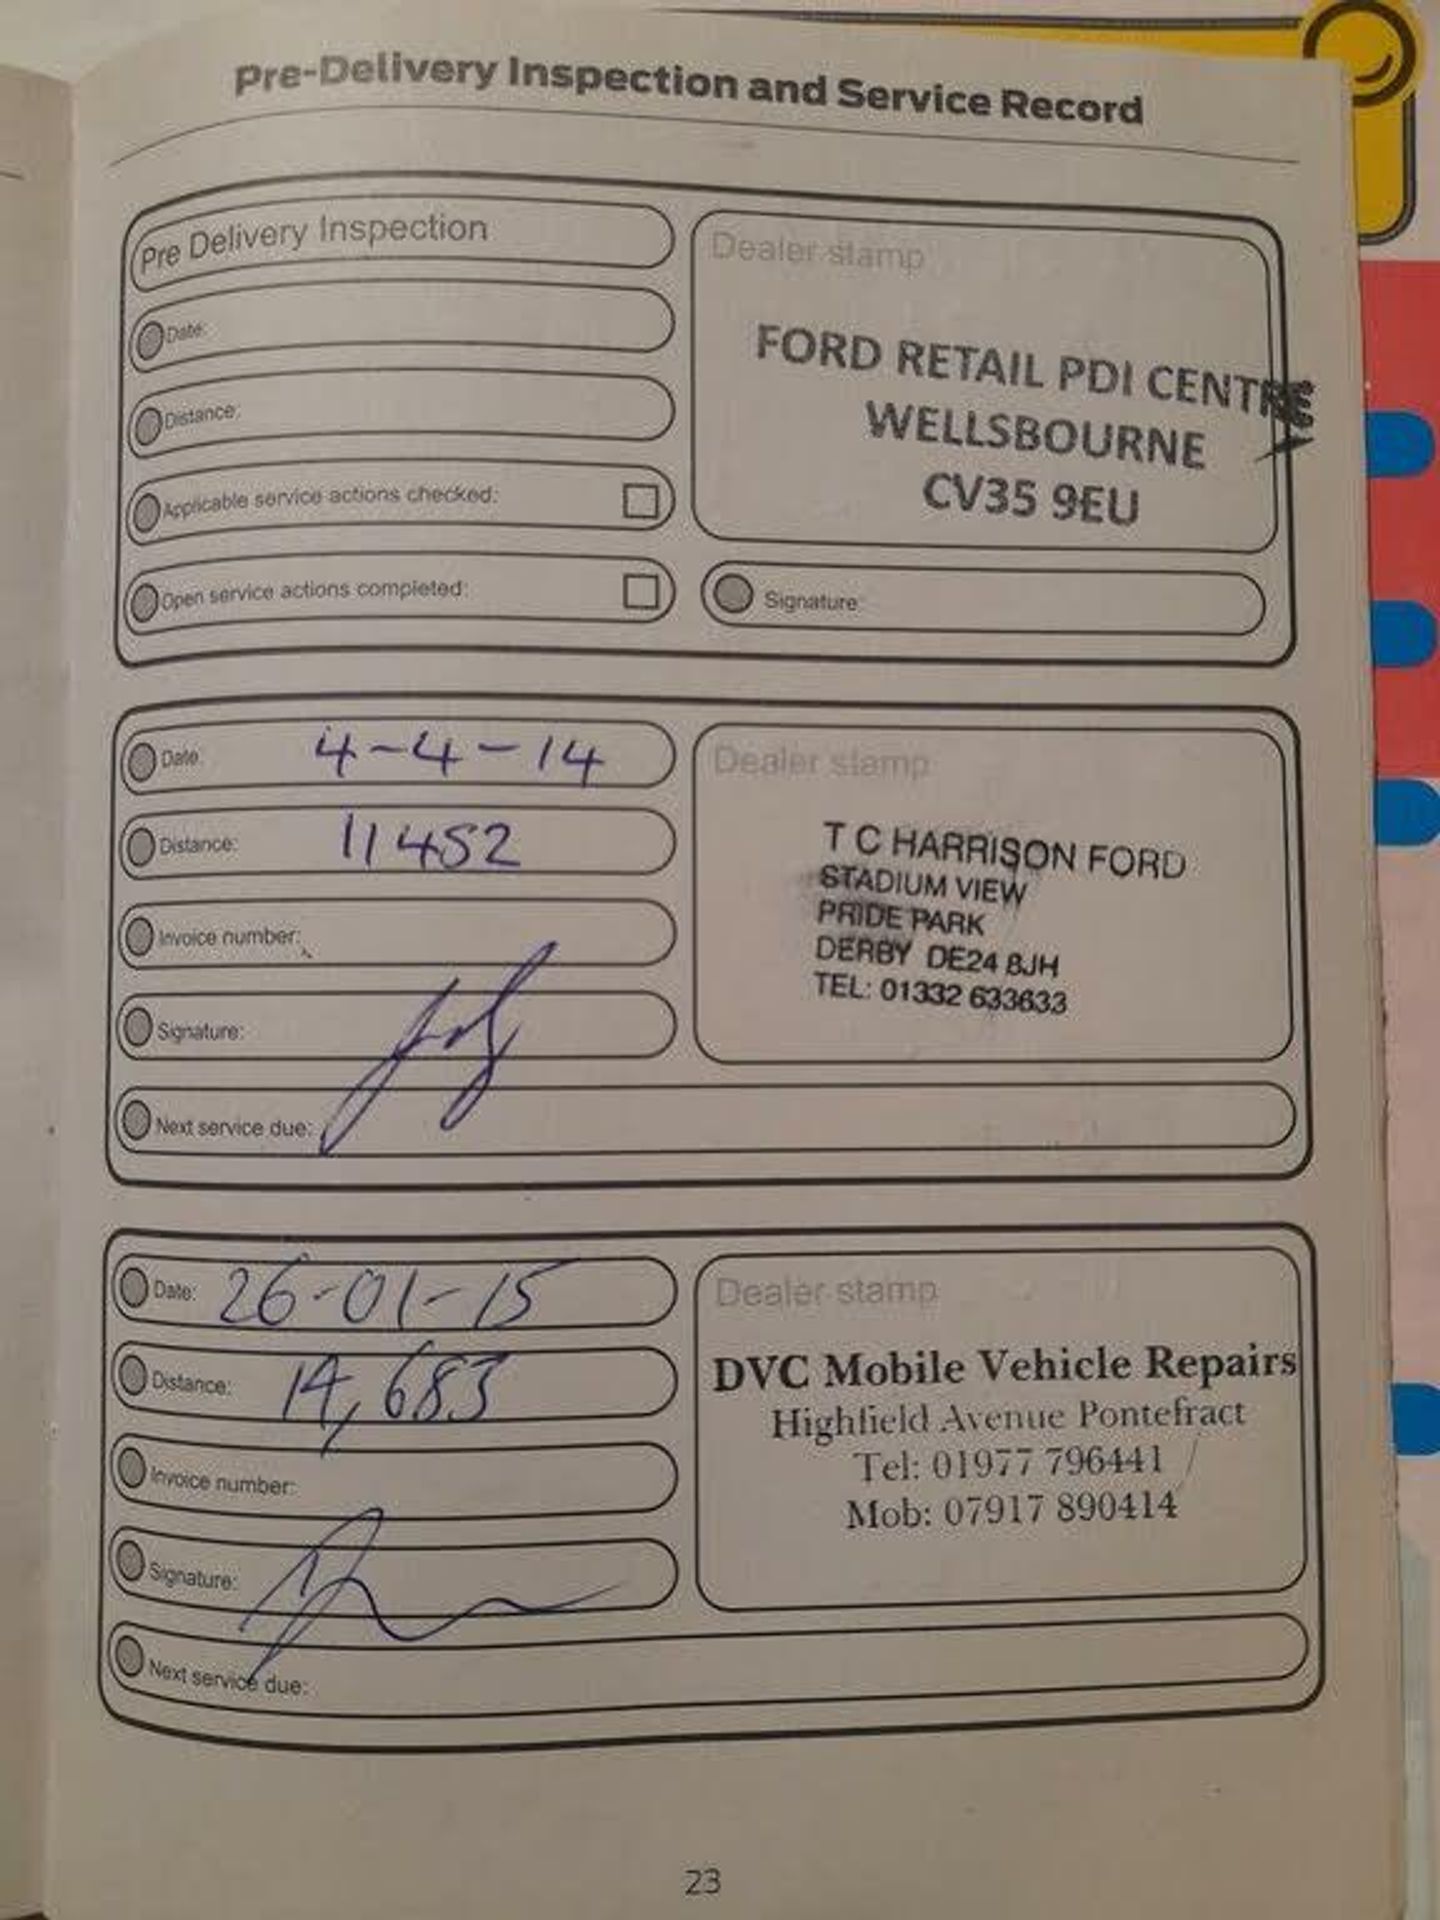 Pre-Delivery Inspection and Service Record
Pre Delivery Inspection
Date:
Distance:
Applicable service actions checked:
Open service actions completed:
Dealer stamp
FORD RETAIL PDI CENTRE
WELLSBOURNE
CV35 9EU
Signature:
Date: 4-4-14
Distance: 11452
Invoice number:
Signature:
Next service due:
Dealer stamp
T C HARRISON FORD
STADIUM VIEW
PRIDE PARK
DERBY DE24 8JH
TEL: 01332 633633
Date: 26-01-15
Distance: 14,683
Invoice number:
Signature:
Next service due:
Dealer stamp
DVC Mobile Vehicle Repairs
Highfield Avenue Pontefract
Tel: 01977 796441
Mob: 07917 890414
23